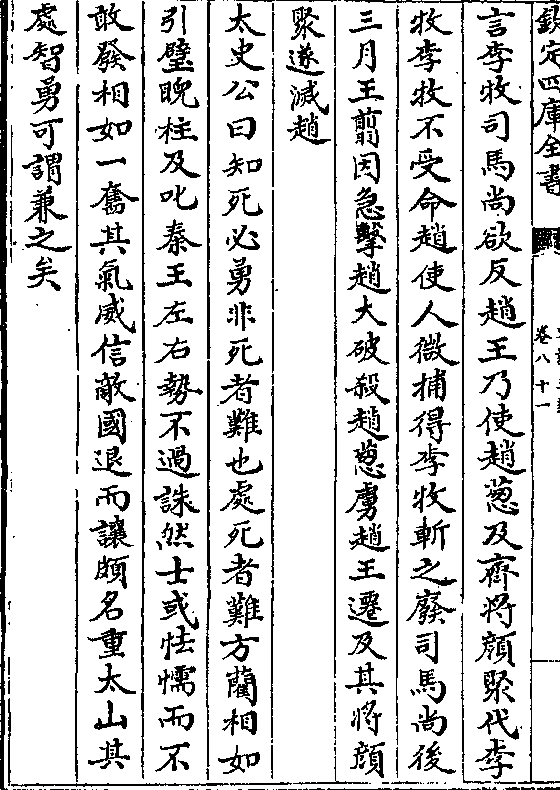 欽定四庫全書
卷八十一
言李牧司馬尚欲反趙王乃使趙蔥及齊將顔聚代李
牧李牧不受命趙使人微捕得李牧斬之廢司馬尚後
三月王翦因急擊趙大破殺趙蔥虜趙王遷及其將顔
聚遂滅趙
太史公曰知死必勇非死者難也處死者難方藺相如
引璧睨柱及叱秦王左右勢不過誅然士或怯懦而不
敢發相如一奮其氣威信敵國退而讓頗名重太山其
處智勇可謂兼之矣